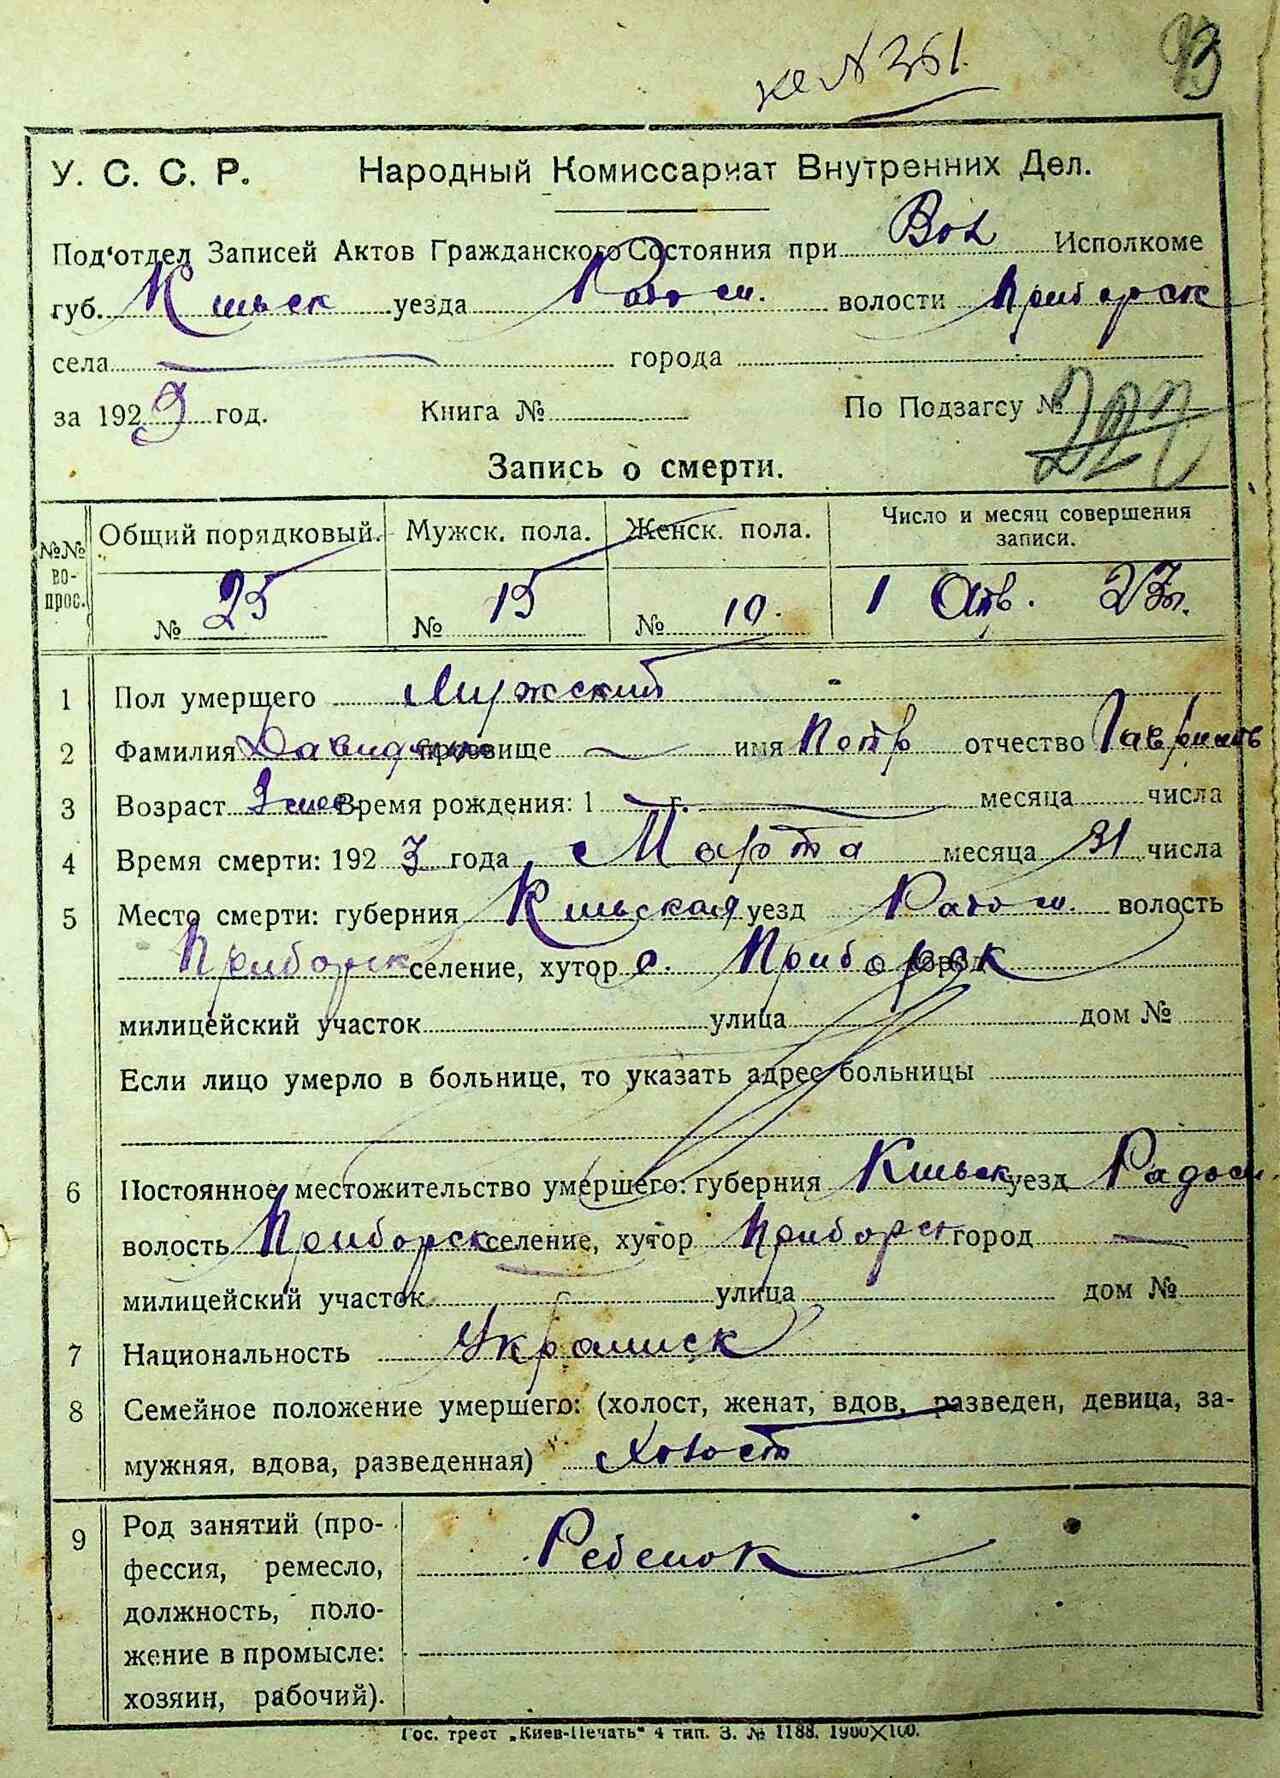 № 361.
93
У. С. С. Р. Народный Комиссариат Внутренних Дел.
Под'отдел Записей Актов Гражданского Состояния при Вол Исполкоме
губ. Киевск уезда Радом. волости Приборск
села города
за 1923 год. Книга № По Подзагсу № 222
Запись о смерти.
№№ вопрос. Общий порядковый. Мужск. пола. Женск. пола. Число и месяц совершения записи.
№ 25 № 15 № 10. 1 Апр. 23г.
1 Пол умершего Мужской
2 Фамилия прозвище имя Петр отчество Гаврилов
3 Возраст Время рождения: 1 г. месяца числа
4 Время смерти: 1923 года Марта месяца 31 числа
5 Место смерти: губерния Киевская уезд Радом. волость
Приборск селение, хутор с. Приборск город
милицейский участок улица дом №
Если лицо умерло в больнице, то указать адрес больницы
6 Постоянное местожительство умершего: губерния Киевск уезд Радом.
волость Приборск селение, хутор Приборск город
милицейский участок улица дом №
7 Национальность Украинск
8 Семейное положение умершего: (холост, женат, вдов, разведен, девица, за-
мужняя, вдова, разведенная) Холост
9 Род занятий (про-
фессия, ремесло,
должность, поло-
жение в промысле:
хозяин, рабочий).
Ребенок
Гос. трест „Киев-Печать" 4 тип. З. № 1188. 1900×100.